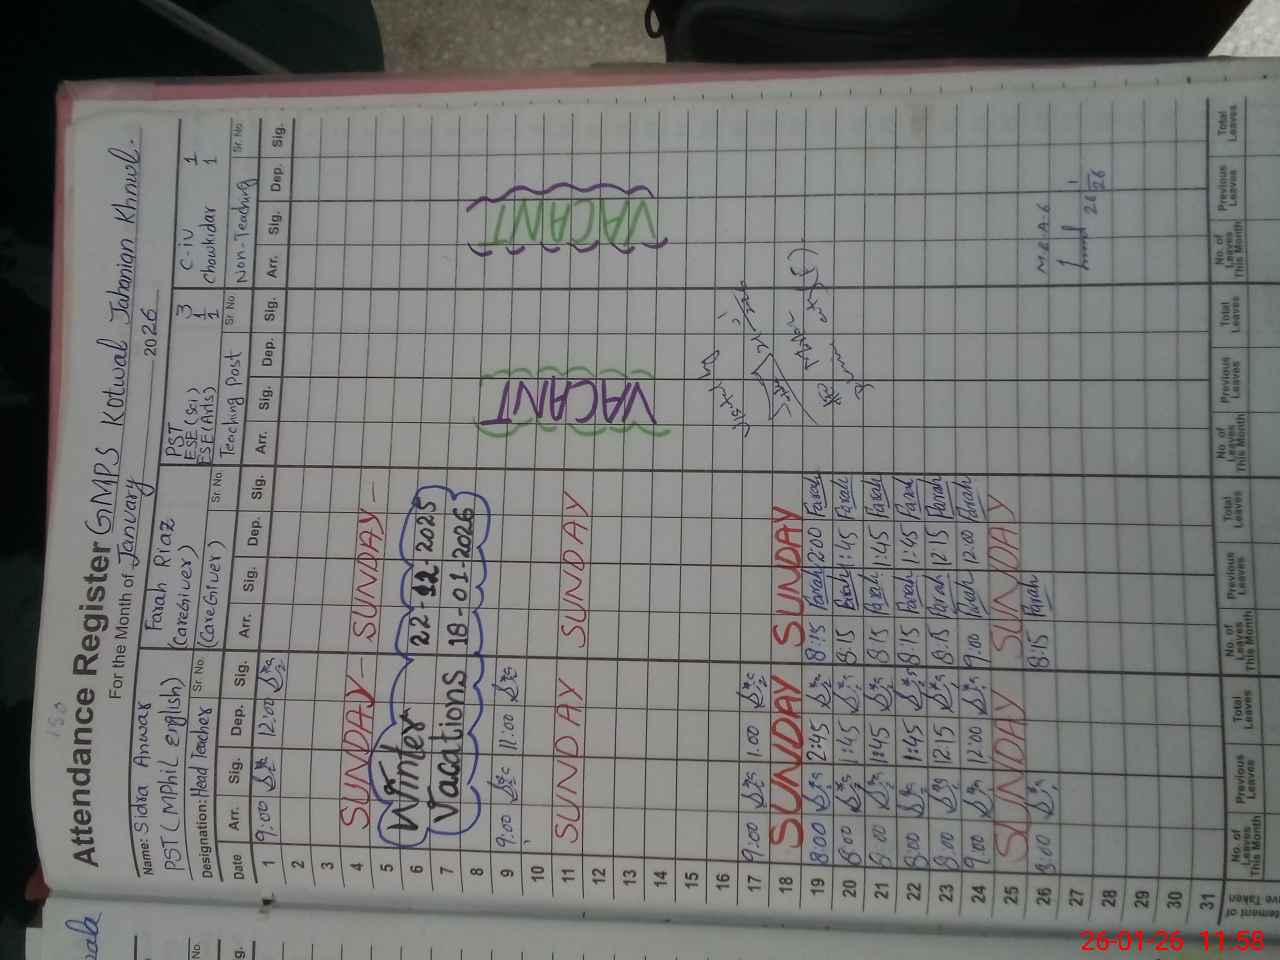 Attendance Register GMPS Kotwal Jahanian Khnwl.
For the Month of January 2026
Name: Sidra Anwar
PST (MPhil English)
Designation: Head Teacher Sr. No.
Farah Riaz
(CareGiver)
(CareGiver) Sr. No
PST 3
ESE (Sci) 1
ESE (Arts) 1
Teaching Post Sr. No
C-iv 1
Chowkidar 1
Non-Teaching Sr. No
Date Arr. Sig. Dep. Sig. Arr. Sig. Dep. Sig. Arr. Sig. Dep. Sig. Arr. Sig. Dep. Sig.
1 9:00 12:00
2
3
4 SUNDAY SUNDAY
5
6 Winter 22-12-2025
7 Vacations 18-01-2026
8
9 9:00 11:00
10
11 SUNDAY SUNDAY
12
13
14
VACANT
VACANT
15
16
17 9:00 1:00
18 SUNDAY SUNDAY
19 8:00 2:45 8:15 Farah 2:00 Farah
20 8:00 1:45 8:15 Farah 1:45 Farah
21 8:00 1:45 8:15 Farah 1:45 Farah
22 8:00 1:45 8:15 Farah 1:45 Farah
23 8:00 12:15 8:15 Farah 12:15 Farah
24 9:00 12:00 9:00 Farah 12:00 Farah
25 SUNDAY SUNDAY
26 8:00 8:15 Farah
27
28
29
30
31
26/1/26
No. of Leaves This Month Previous Leaves Total Leaves No. of Leaves This Month Previous Leaves Total Leaves No. of Leaves This Month Previous Leaves Total Leaves No. of Leaves This Month Previous Leaves Total Leaves
26-01-26 11:58